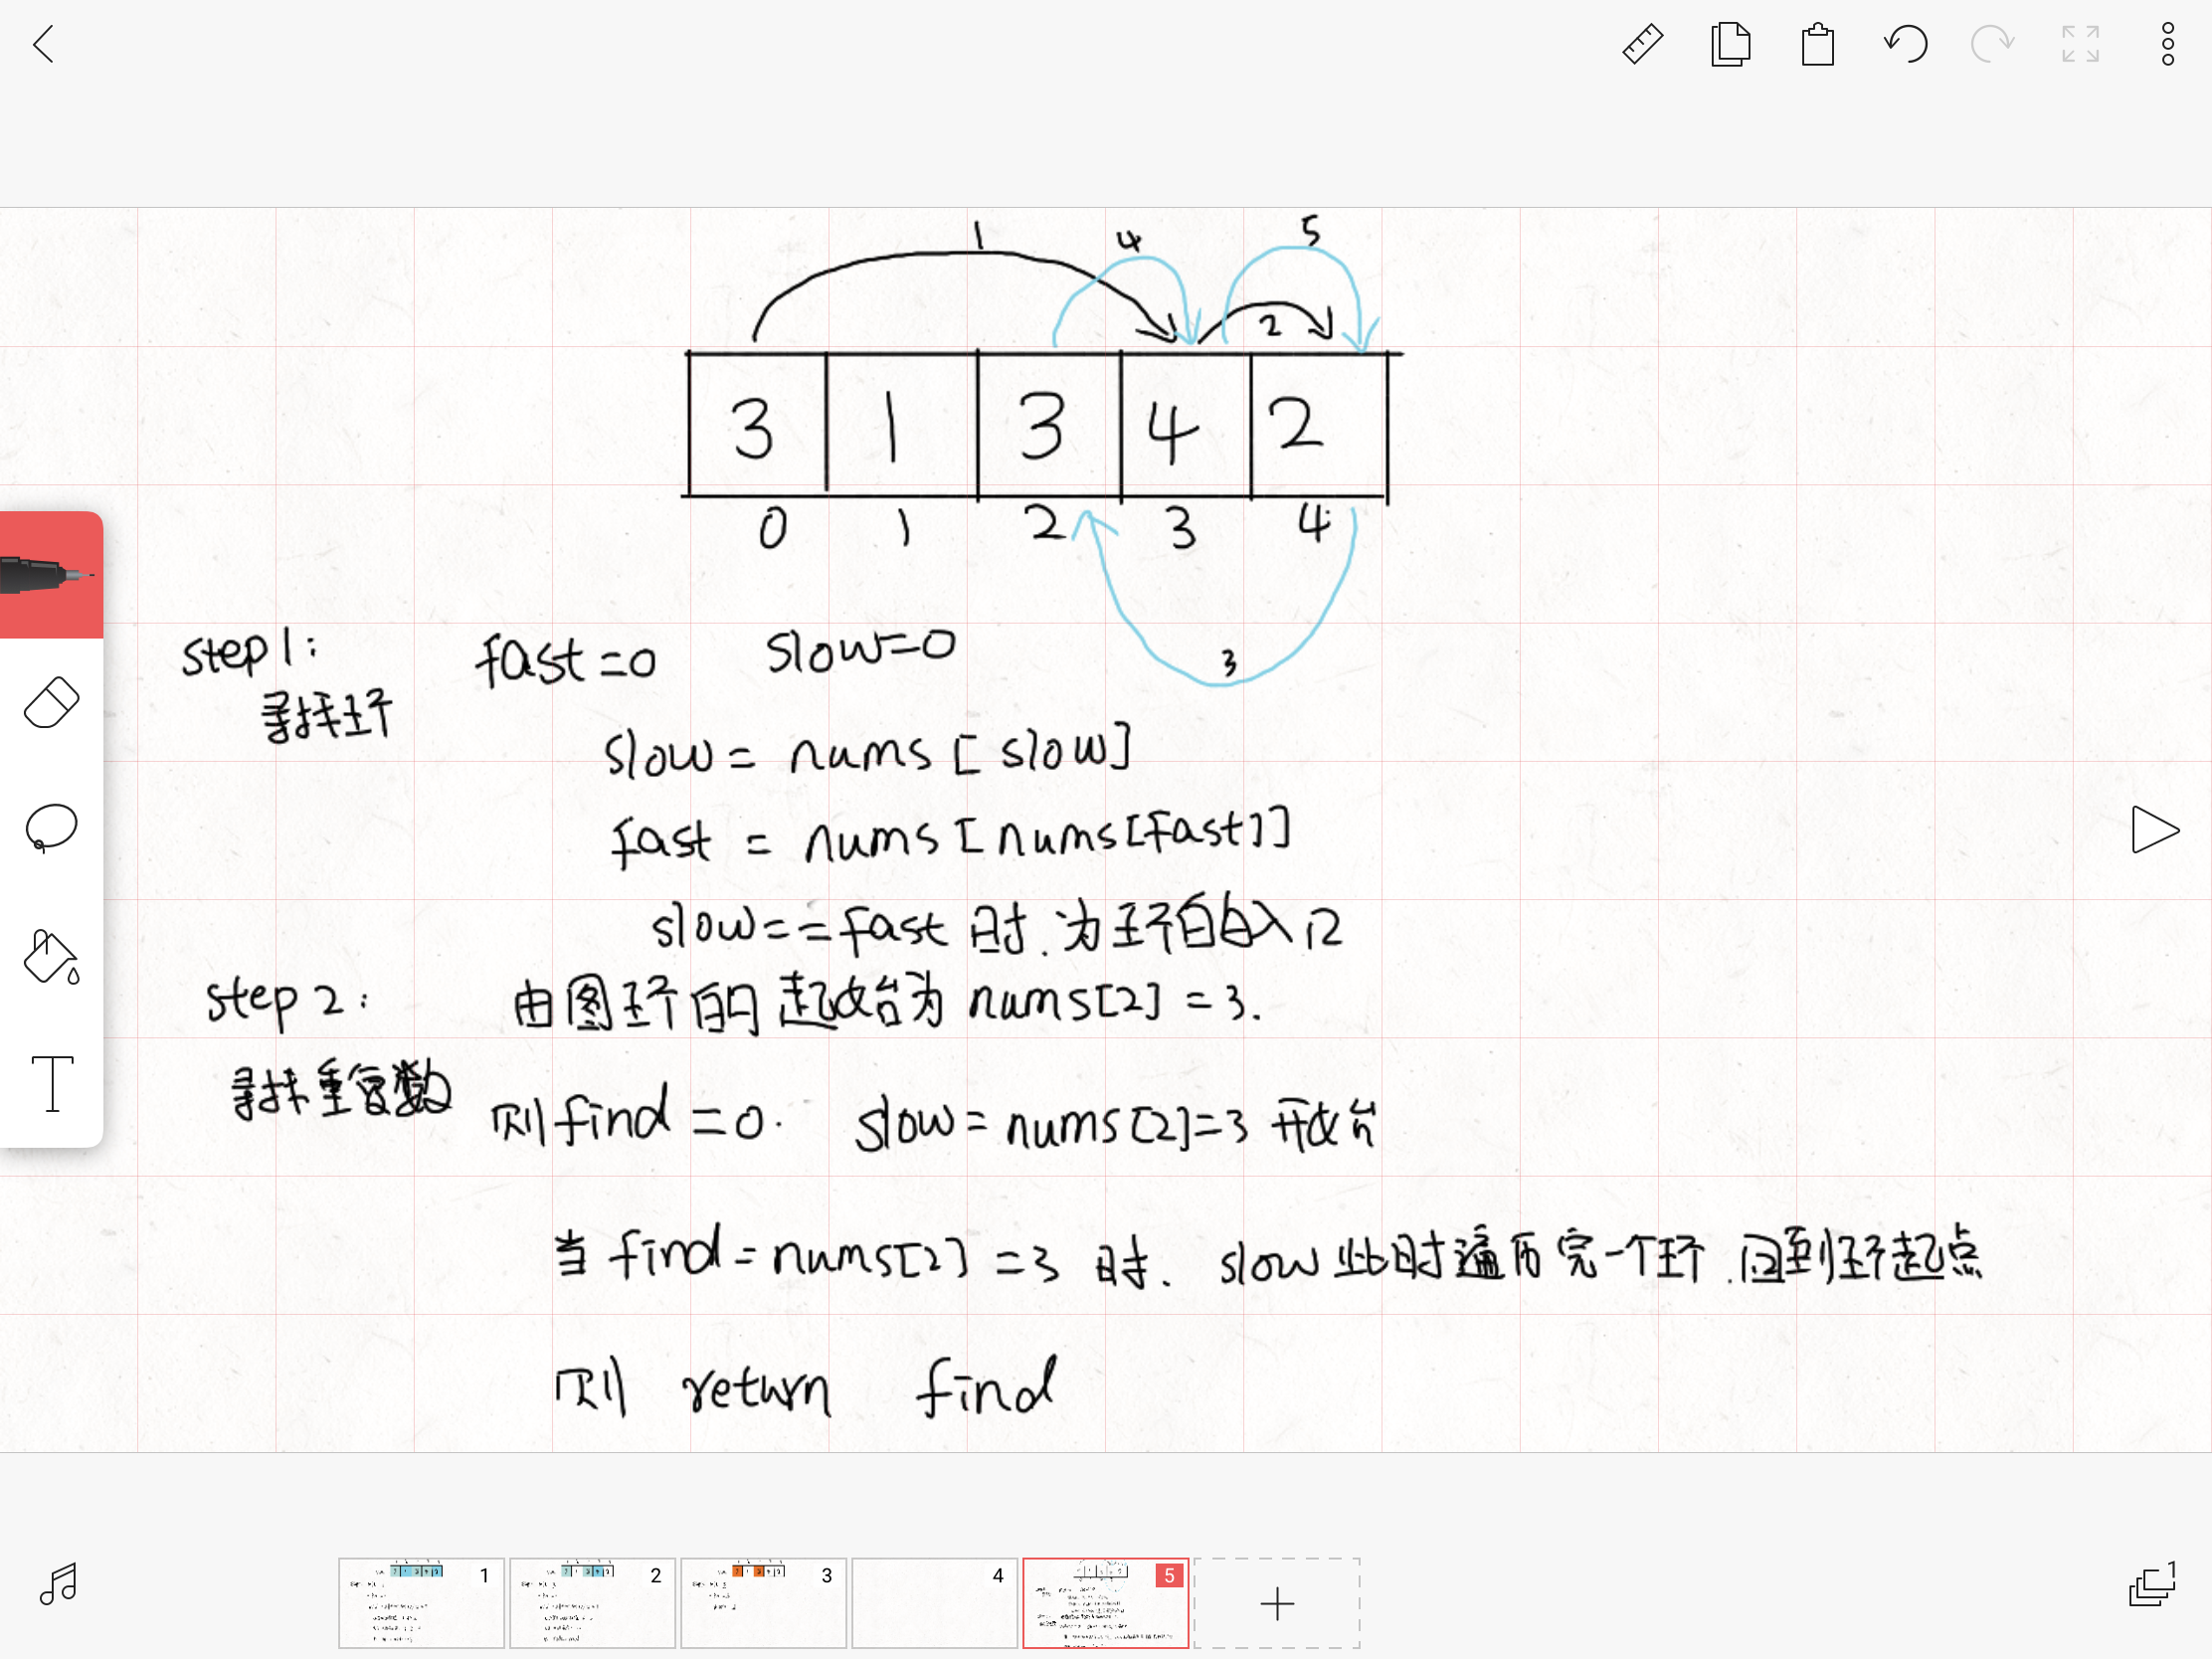 1 4 5
2
3 1 3 4 2
0 1 2 3 4
3
step1: fast=0 slow=0
寻找环
slow = nums [ slow]
fast = nums [ nums[fast]]
slow==fast 时.为环的入口
step 2: 由图环的起始为 nums[2] = 3.
寻找重复数
则find =0. slow= nums [2]=3 开始
当 find=nums[2] =3 时. slow 此时遍历完一个环.回到环起点
则 return find
1 2 3 4 5
1
T